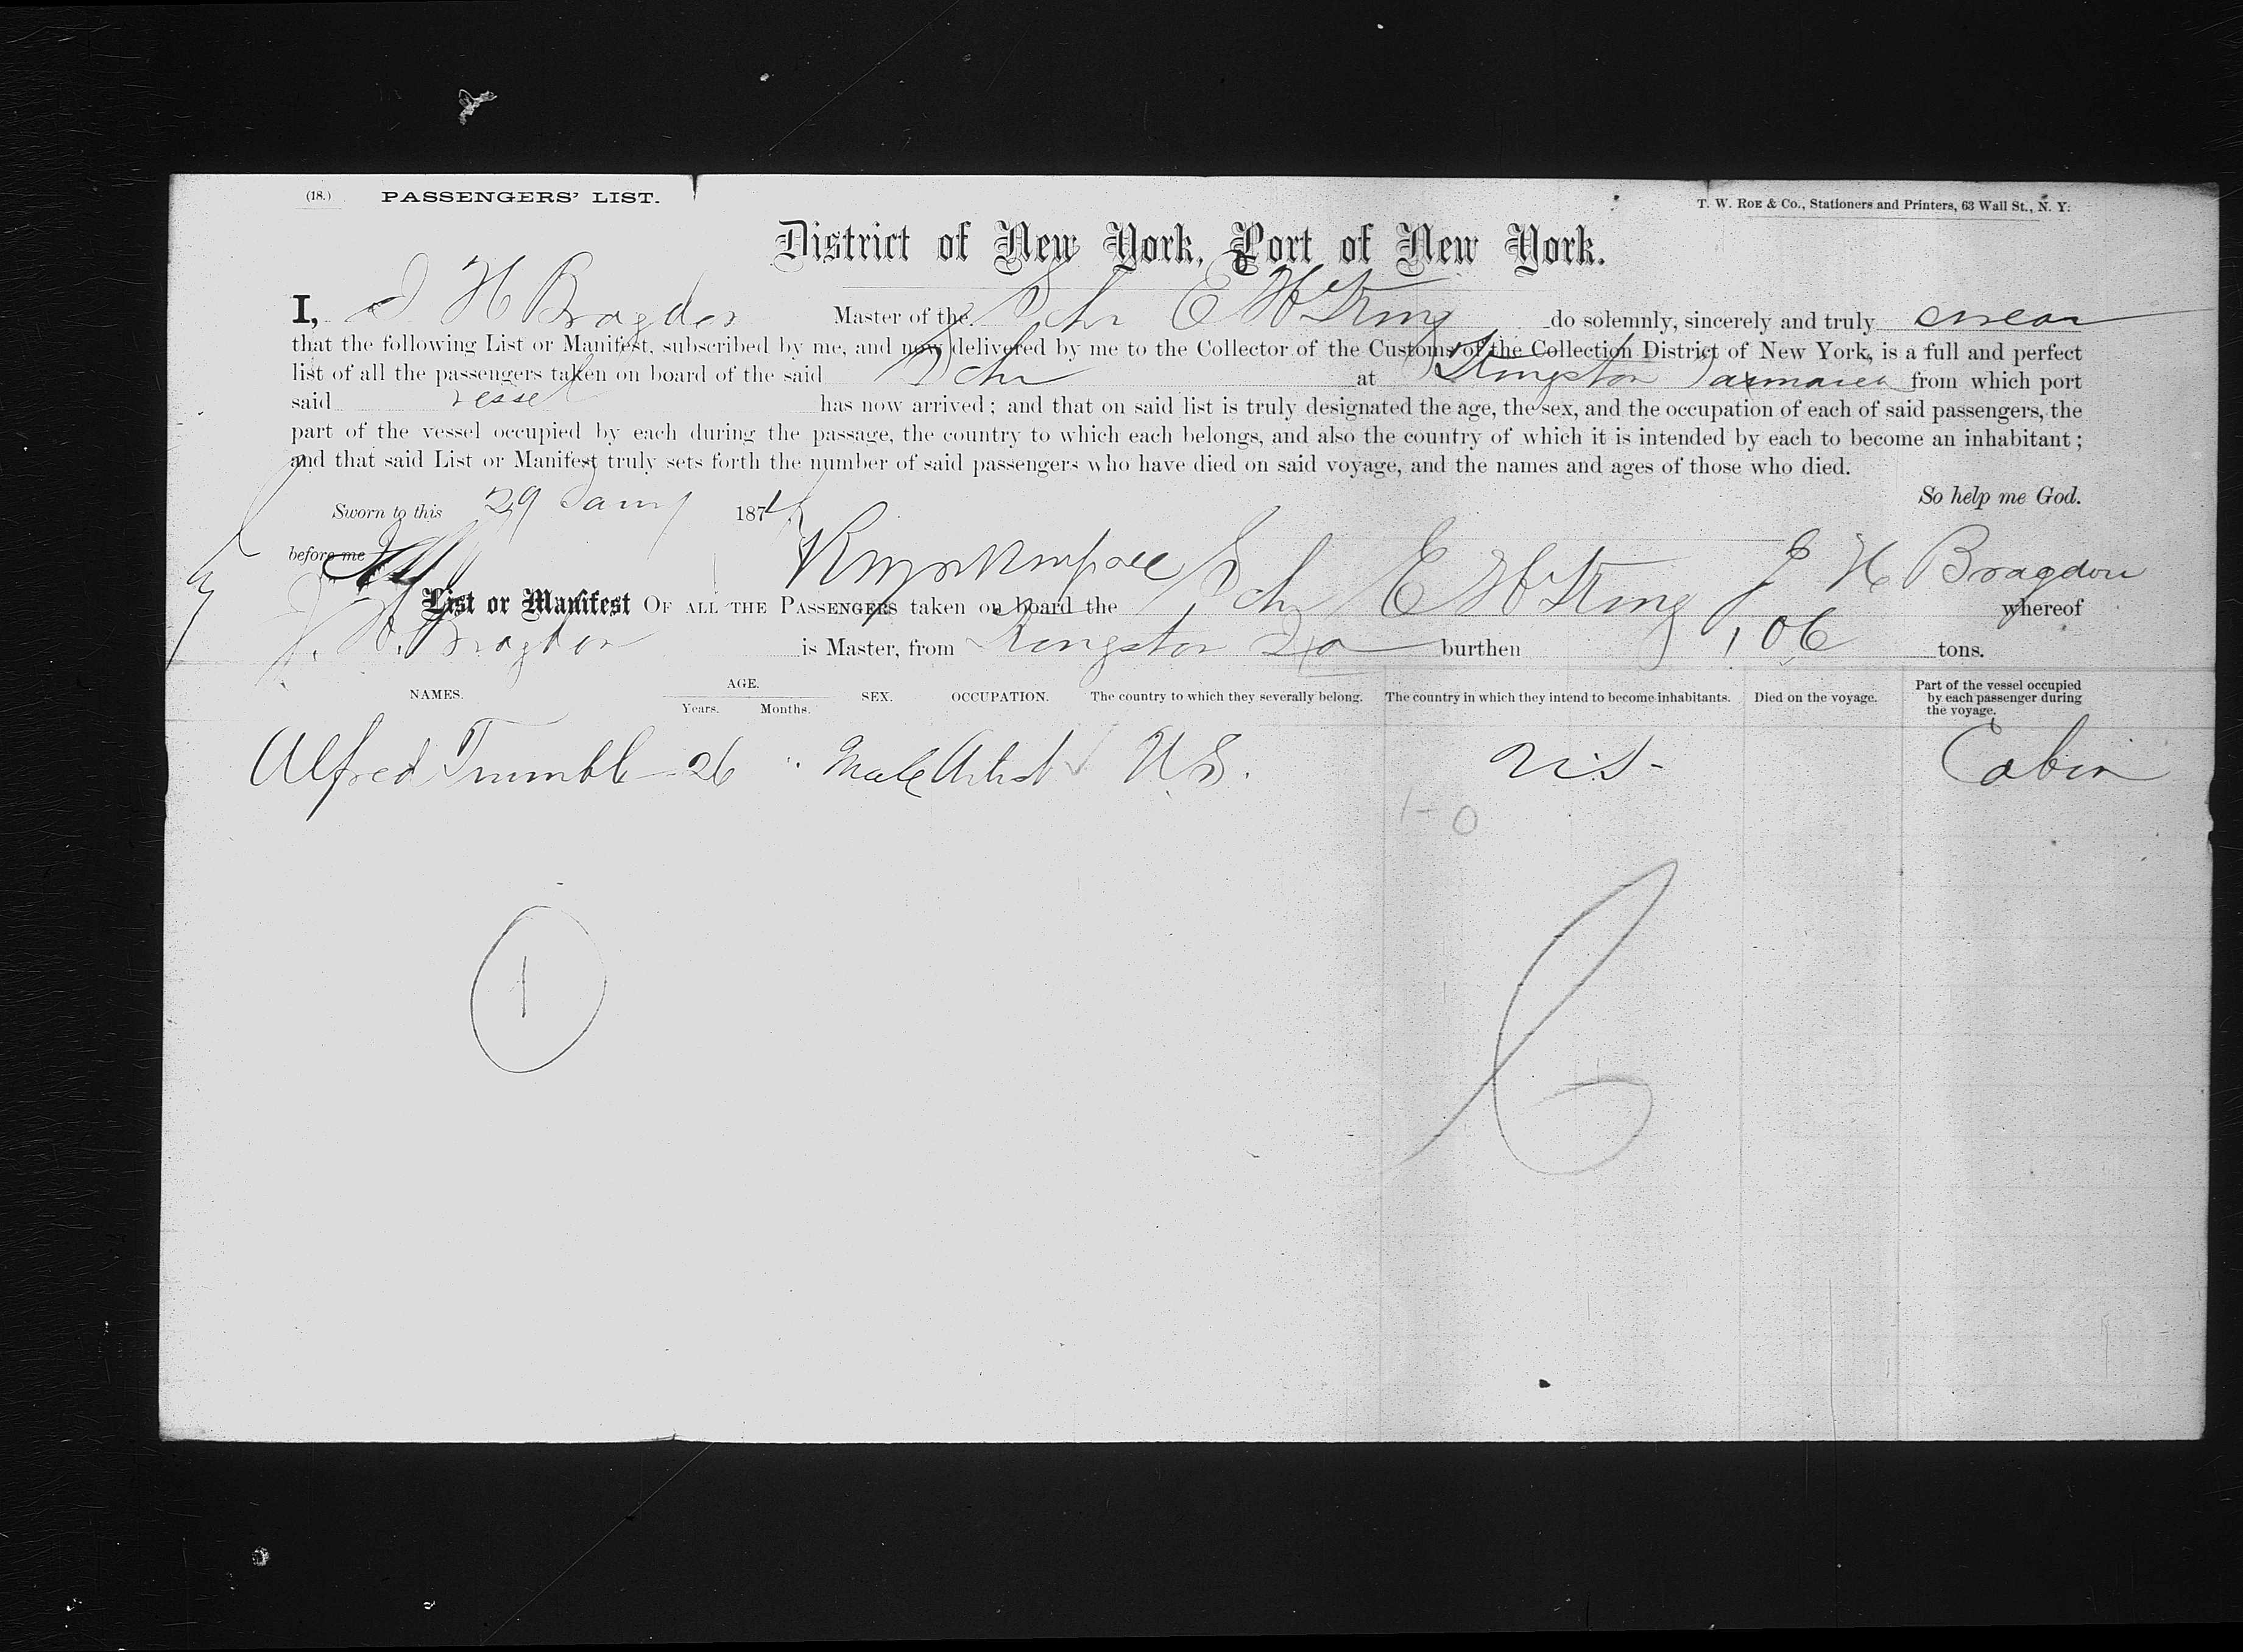 (18.) PASSENGERS' LIST.
T. W. ROE & Co., Stationers and Printers, 63 Wall St., N. Y.
District of New York, Port of New York.
I, J H Bragdon Master of the Schr E W King do solemnly, sincerely and truly swear
that the following List or Manifest, subscribed by me, and now delivered by me to the Collector of the Customs of the Collection District of New York, is a full and perfect
list of all the passengers taken on board of the said Schr at Kingston Jamaica from which port
said vessel has now arrived; and that on said list is truly designated the age, the sex, and the occupation of each of said passengers, the
part of the vessel occupied by each during the passage, the country to which each belongs, and also the country of which it is intended by each to become an inhabitant;
and that said List or Manifest truly sets forth the number of said passengers who have died on said voyage, and the names and ages of those who died.
So help me God.
Sworn to this 29 Jany 187
before me J H Bragdon
List or Manifest OF ALL THE PASSENGERS taken on board the Schr E W King whereof
J. H. Bragdon is Master, from Kingston Ja burthen 106 tons.
NAMES. AGE. Years. Months. SEX. OCCUPATION. The country to which they severally belong. The country in which they intend to become inhabitants. Died on the voyage. Part of the vessel occupied by each passenger during the voyage.
Alfred Trumble 26 " Male Artist U.S. U.S. Cabin
1-0
1